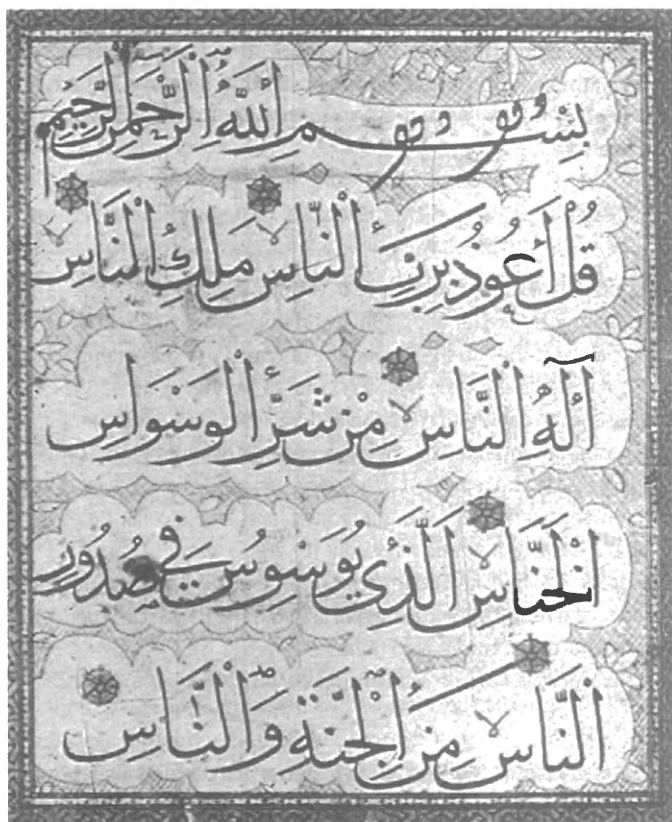 بِسْمِ اللَّهِ الرَّحْمَنِ الرَّحِيمِ
قُلْ أَعُوذُ بِرَبِّ النَّاسِ مَلِكِ النَّاسِ
إِلَٰهِ النَّاسِ مِنْ شَرِّ الْوَسْوَاسِ
الْخَنَّاسِ الَّذِي يُوَسْوِسُ فِي صُدُورِ
النَّاسِ مِنَ الْجِنَّةِ وَالنَّاسِ